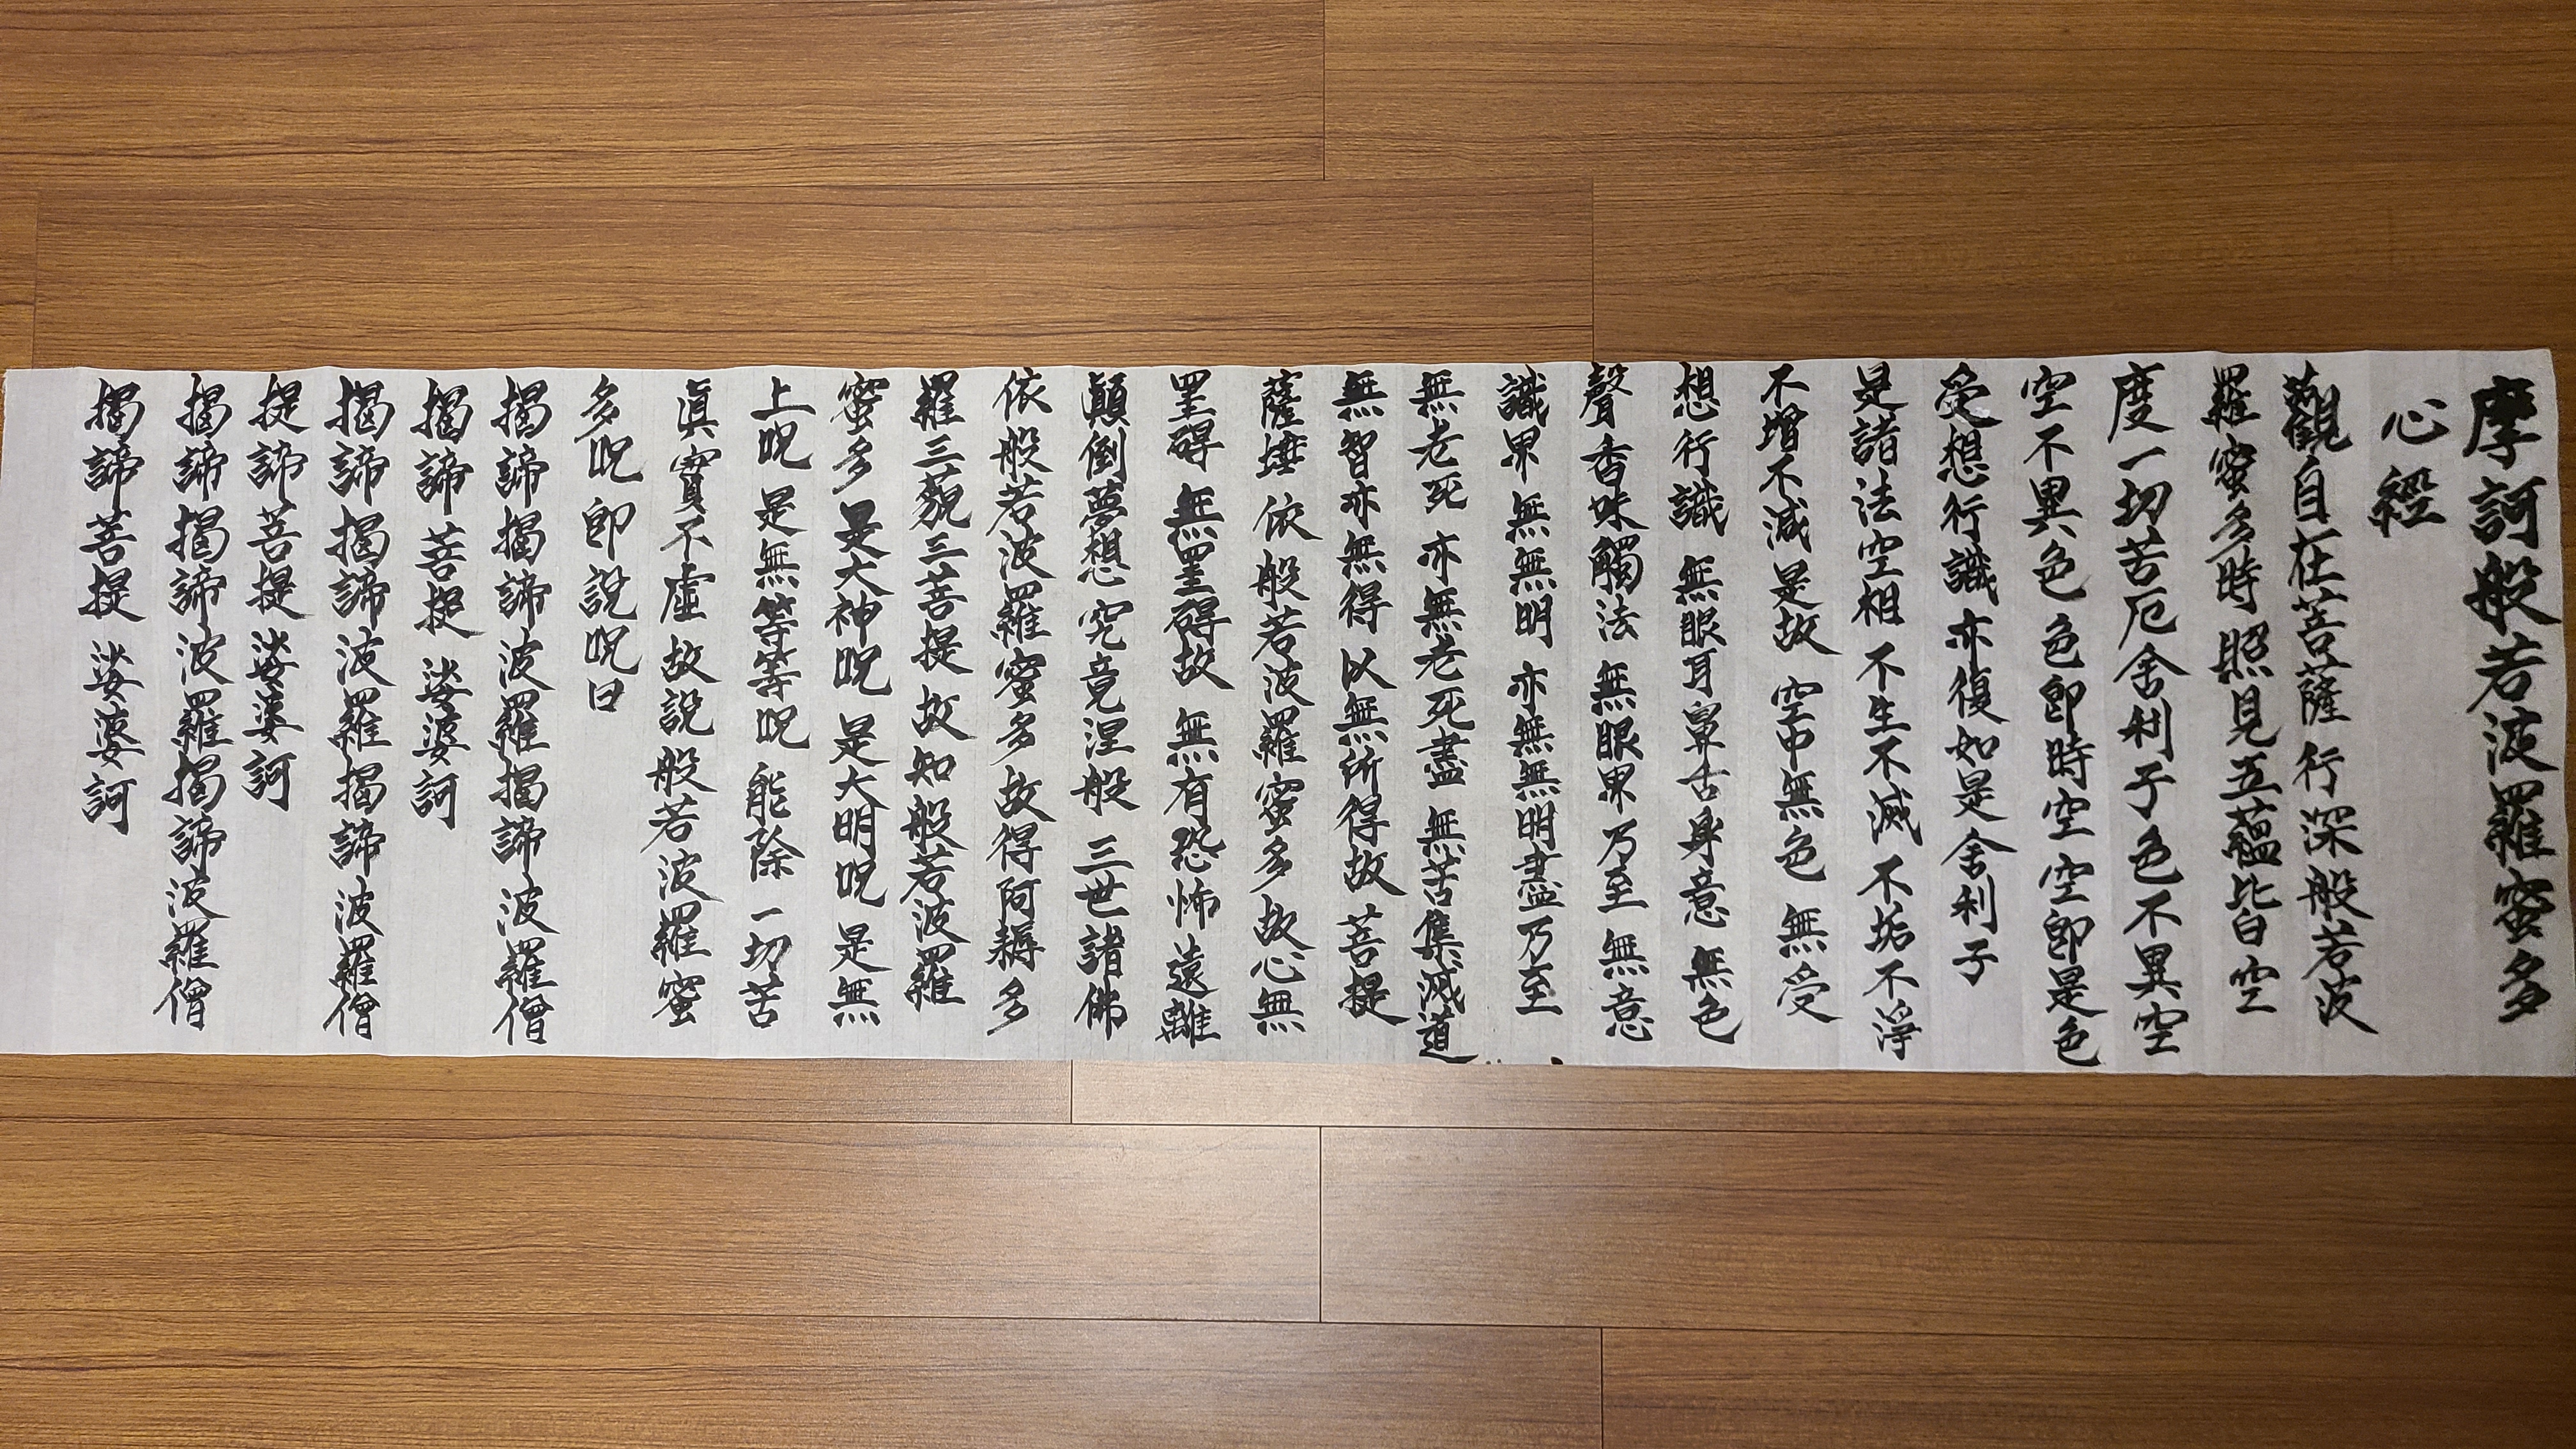 摩訶般若波羅蜜多
心經
觀自在菩薩 行深般若波
羅蜜多時 照見五蘊皆空
度一切苦厄舍利子色不異空
空不異色 色卽時空 空卽是色
受想行識 亦復如是舍利子
是諸法空相 不生不滅 不垢不淨
不增不減 是故 空中無色 無受
想行識 無眼耳鼻舌身意 無色
聲香味觸法 無眼界 乃至 無意
識界 無無明 亦無無明盡 乃至
無老死 亦無老死盡 無苦集滅道
無智亦無得 以無所得故 菩提
薩埵 依般若波羅蜜多 故心無
罣碍 無罣碍故 無有恐怖 遠離
顚倒夢想 究竟涅般 三世諸佛
依般若波羅蜜多 故得阿耨多
羅三藐三菩提 故知般若波羅
蜜多 是大神呪 是大明呪 是無
上呪 是無等等呪 能除 一切苦
眞實不虛 故說般若波羅蜜
多呪 卽說呪曰
揭諦揭諦 波羅揭諦 波羅僧
揭諦 菩提 娑婆訶
揭諦揭諦 波羅揭諦 波羅僧
提諦 菩提 娑婆訶
揭諦揭諦 波羅揭諦 波羅僧
揭諦 菩提 娑婆訶